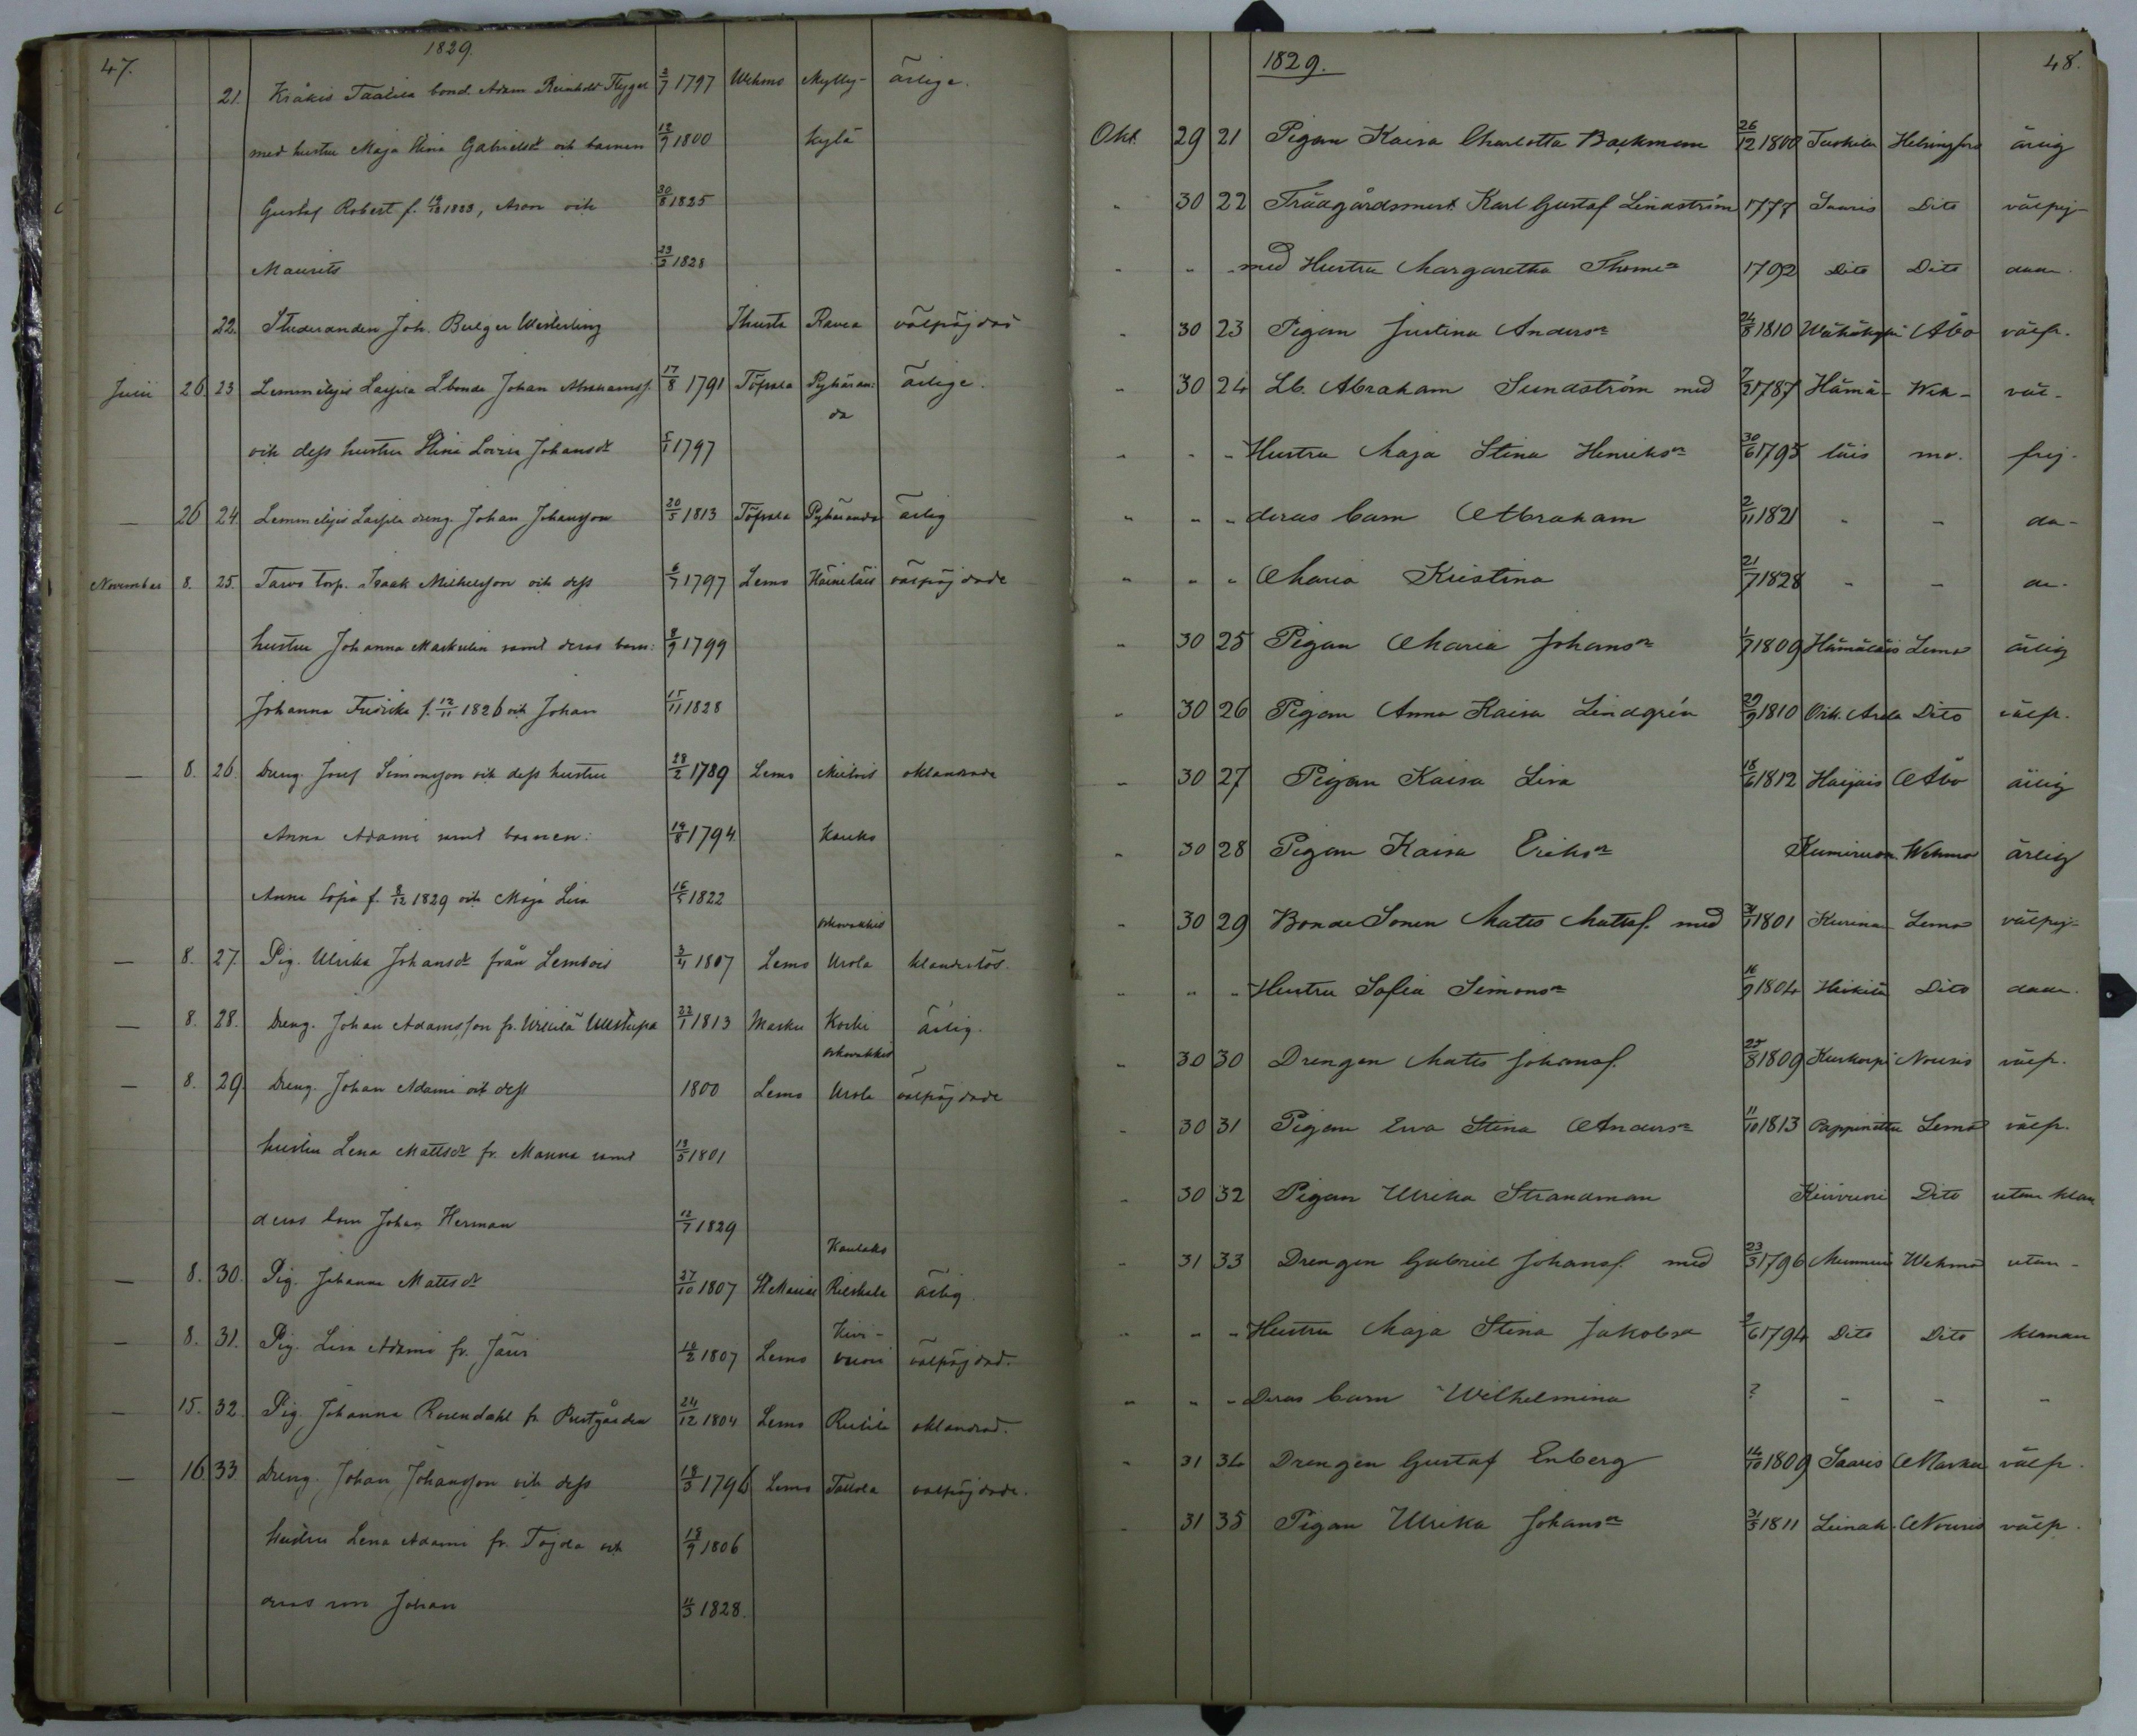 47.
1829.
21. Kråkis Taalila bond. Adam Reinhold Flyger 2/7 1797 Wehmo Mylly- ärlige.
med hustru Maja Stina Gabrielsdr och barnen 12/9 1800 kylä
Gustaf Robert f. 1823, Aron och 30/8 1825
Maurits 23/3 1828
22. Studeranden Joh. Birger Westerling Thusta välfräjdad
Juni 26 23 Lemmilyis Laszila Lbonde Johan Abrahamss. 17/8 1791 Töfsala Pyhäran- ärlige.
da
och dess hustru Stina Lovisa Johansdr 5/1 1797
— 26 24. Lemmilyis dreng. Johan Johansson 20/5 1813 Töfsala Pyhäranda ärlig
November 8. 25. Tarvo torp. Isaak Mickelsson och dess 6/7 1797 Lemo välfräjdade
hustru Johanna Markulin samt deras barn: 8/9 1799
Johanna Fredrika f. 12/11 1826 och Johan 15/11 1828
— 8. 26. Dreng. Josef Simonsson och dess hustru 28/2 1789 Lemo oklandrade
Anna Adami samt barnen: 19/8 1794. Kauko
Anna Sofia f. 8/12 1829 och Maja Lisa 16/5 1822
— 8. 27. Pig. Ulrika Johansdr från Lembois 3/4 1807 Lemo Urola klanderlös.
— 8. 28. Dreng. Johan Adamsson fr. 22/1 1813 Masku Korbi ärlig.
— 8. 29. Dreng. Johan Adami och dess 1800 Lemo Urola välfräjdade
hustru Lena Mattsdr fr. Manna samt 13/5 1801
deras barn Johan Herman 12/7 1829
— 8. 30. Pig. Johanna Mattsdr 27/10 1807 ärlig.
Kivi-
— 8. 31. Pig. Lisa Adami fr. Järis 16/2 1807 Lemo vuori välfräjdad.
— 15. 32. Pig. Johanna Rosendahl fr. Prestgården 24/12 1804 Lemo oklandrad.
— 16 33. Dreng. Johan Johansson och dess 18/3 1796 Lemo Tallola välfräjdade.
hustru Lena Adami fr. Tojda och 18/9 1806
deras son Johan 11/3 1828.
1829.
48.
Okt. 29 21 Pigan Kaisa Charlotta Backman 26/12 1800 Tuokila Helsingfors ärlig
" 30 22 Trädgårdsmest. Karl Gustaf Lindström 1777 Saaris Dito välfrej-
" " " med Hustru Margaretha Thoms 1792 Dito Dito dade.
" 30 23 Pigan Justina Andersdr 24/8 1810 Åbo välfr.
" 30 24 Lb. Abraham Sundström med 7/2 1787 Hämä- Weh- väl-
" " " Hustru Maja Stina Henriksdr 30/6 1795 läis mo. frej-
" " " deras barn Abraham 2/11 1821 - - da-
" " " Maria Kristina 21/7 1828 - - de.
" 30 25 Pigan Maria Johansdr 1/7 1809 Hämäläis Lemo ärlig
" 30 26 Pigan Anna Kaisa Lindgrén 29/9 1810 Dito välfr.
" 30 27 Pigan Kaisa Lisa 18/6 1812 Haijais Åbo ärlig
" 30 28 Pigan Kaisa Eriksdr Wehmo ärlig
" 30 29 Bonde Sonen Matts Mattsf. med 1801 Lemo välfrej-
" " " Hustru Sofia Simonsdr 16/9 1804 Heikilä Dito dade.
" 30 30 Drengen Matts Johansf. 25/8 1809 Nousis välfr.
" 30 31 Pigan Ewa Stina Andersdr 11/10 1813 Lemo välfr.
" 30 32 Pigan Ulrika Strandman Kivivuori Dito utan klan
" 31 33 Drengen Gabriel Johansf. med 23/3 1796 Wehmo utan-
" " " Hustru Maja Stina Jakobsdr 9/6 1794 Dito Dito klander
" " " Deras barn Wilhelmina ? - - -
" 31 34 Drengen Gustaf Enberg 14/10 1809 Saaris Masku välfr.
" 31 35 Pigan Ulrika Johansdr 31/3 1811 Leinak. Nousis välfr.